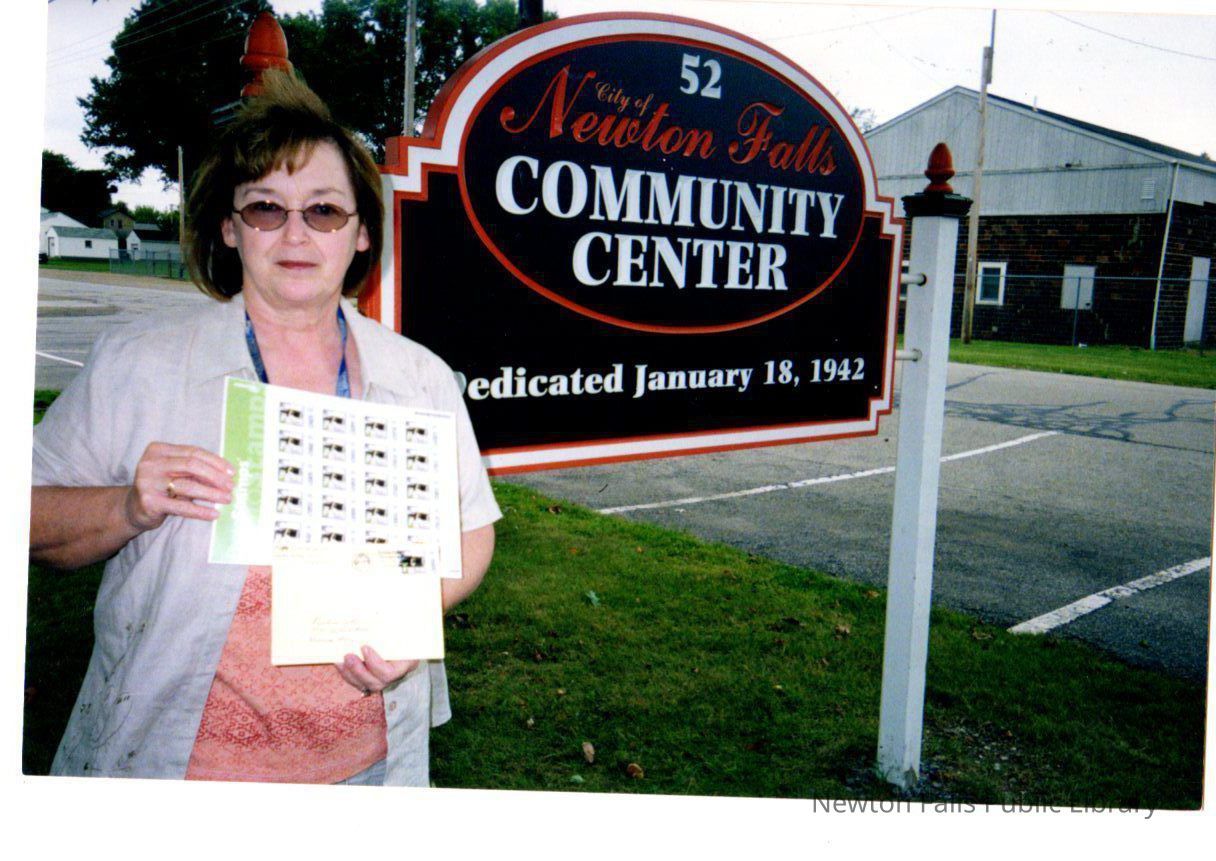 52
City of
Newton Falls
COMMUNITY
CENTER
Dedicated January 18, 1942
Newton Falls Public Library